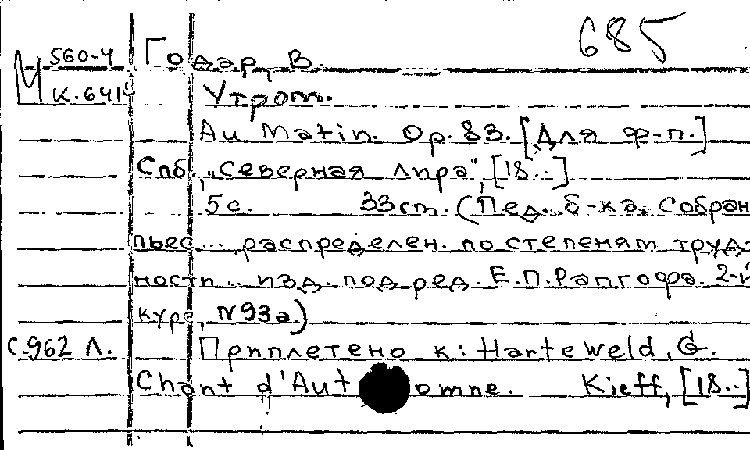 685
560-4 Годар, В.
М К.6414 Утром.
Au Matin. Op. 83. [Для ф-п.]
Спб, „Северная лира", [18..]
5с. 33cm. (Пед. б-ка. Собран
пьес... распределен. по степеням труд-
ности.. изд. под ред. Е.П.Рапгофа. 2-й
курс, N93а.)
С.962 Л. Приплетено к: Harteweld, G.
Chant d'Automne. Kieff, [18..]